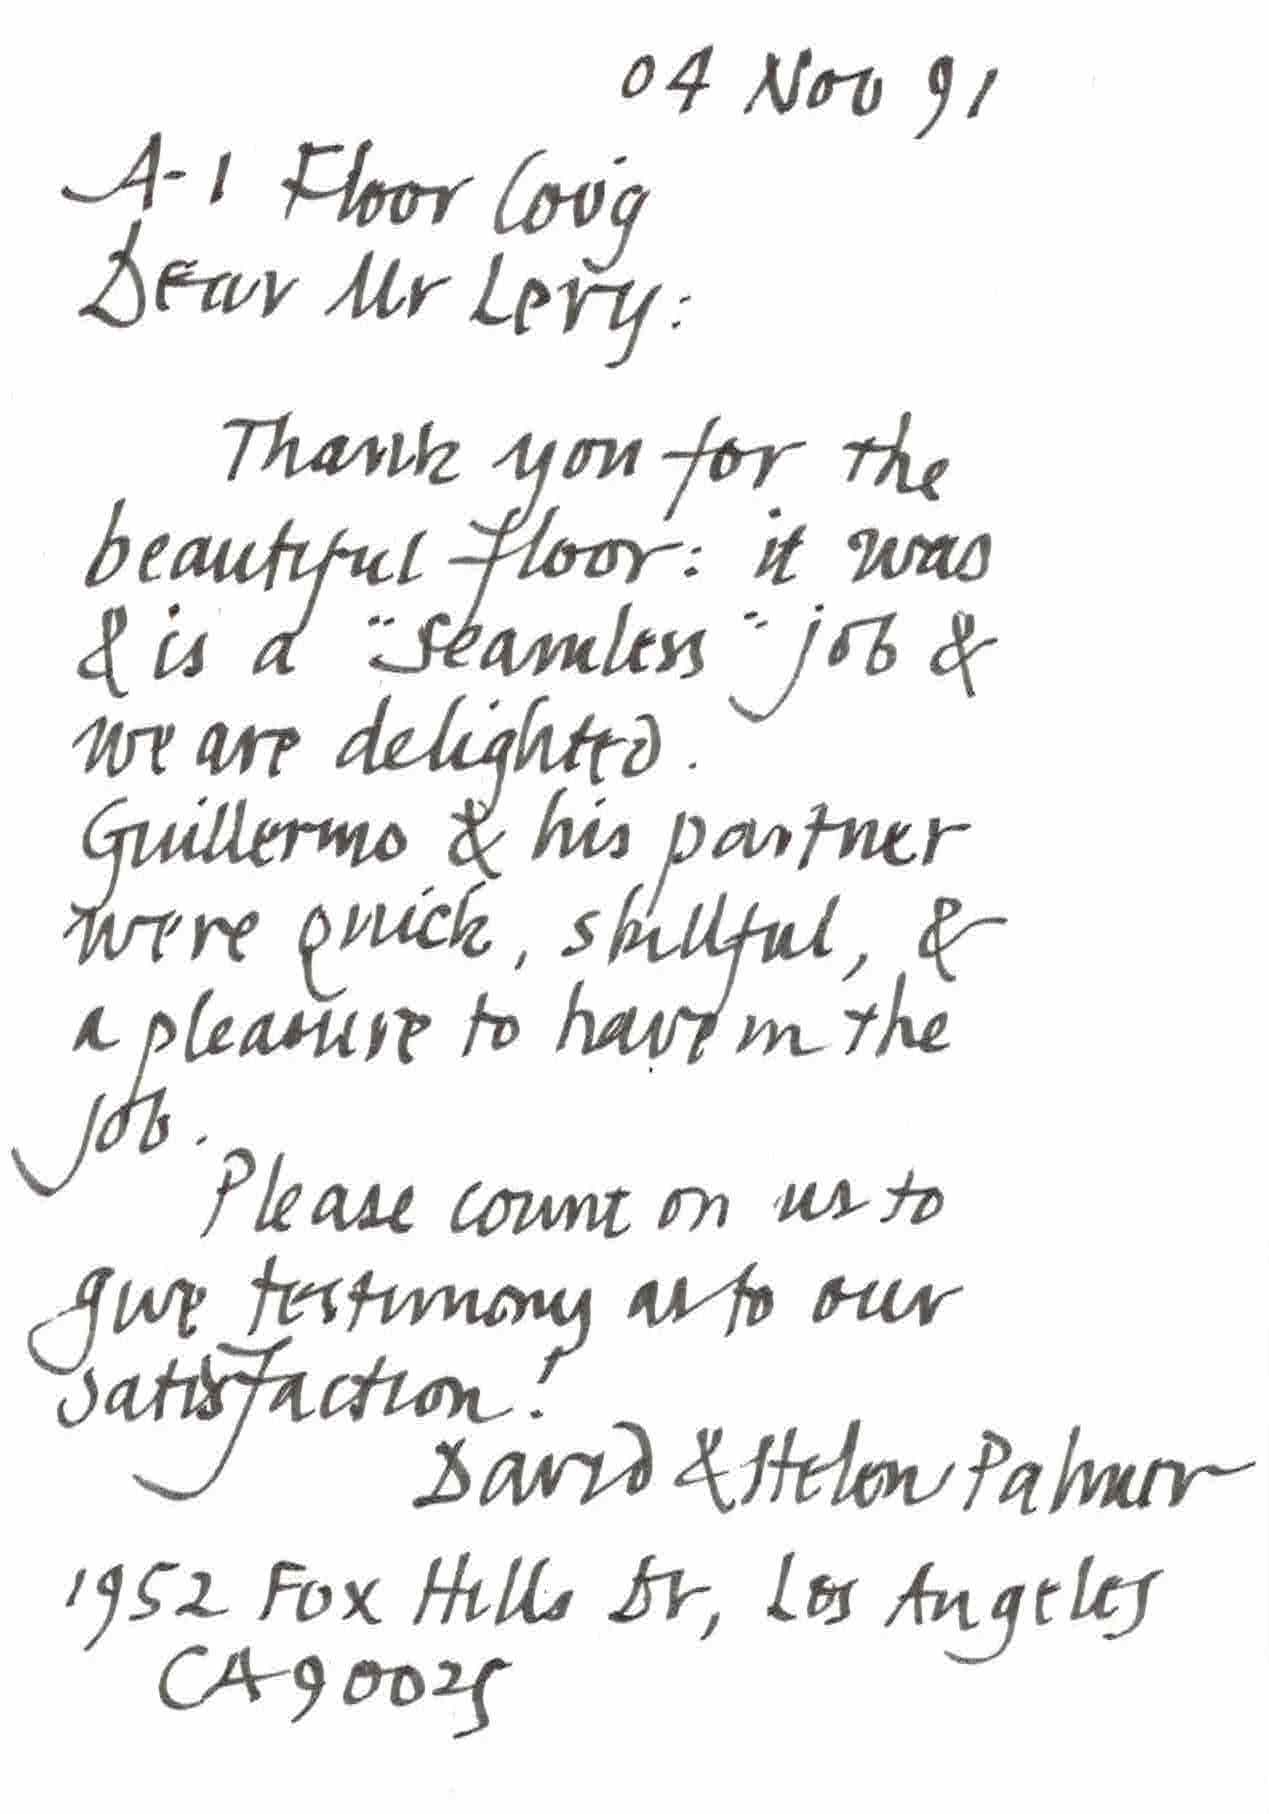 04 Nov 91
A-1 Floor Cov'g
Dear Mr Levy:
Thank you for the
beautiful floor: it was
& is a "seamless" job &
we are delighted.
Guillermo & his partner
were quick, skillful, &
a pleasure to have in the
job.
Please count on us to
give testimony as to our
satisfaction!
David & Helen Palmer
1952 Fox Hills Dr, Los Angeles
CA 90025